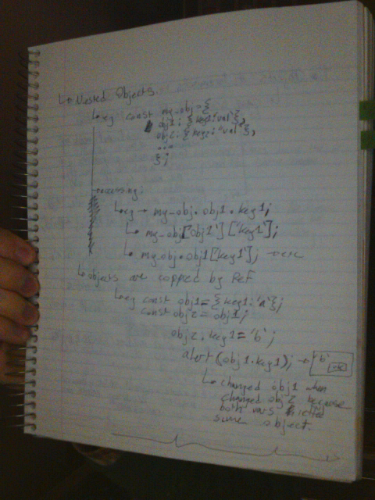 ↳ Nested Objects
↳ eg const my_obj = {
obj1: { key1: 'val' },
obj2: { key2: 'val' },
...
};
↳ accessing:
↳ eg → my-obj.obj1.key1;
↳ my_obj['obj1']['key1'];
↳ my_obj.obj1['key1']; → etc
↳ objects are copped by Ref
↳ eg const obj1 = { key1: 'a' };
const obj2 = obj1;
obj2.key1 = 'b';
alert(obj1.key1); → "b"
↳ changed obj1 when
changed obj2 because
both
same object.